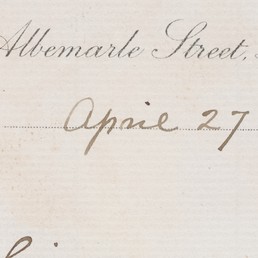 Albemarle Street.
April 27